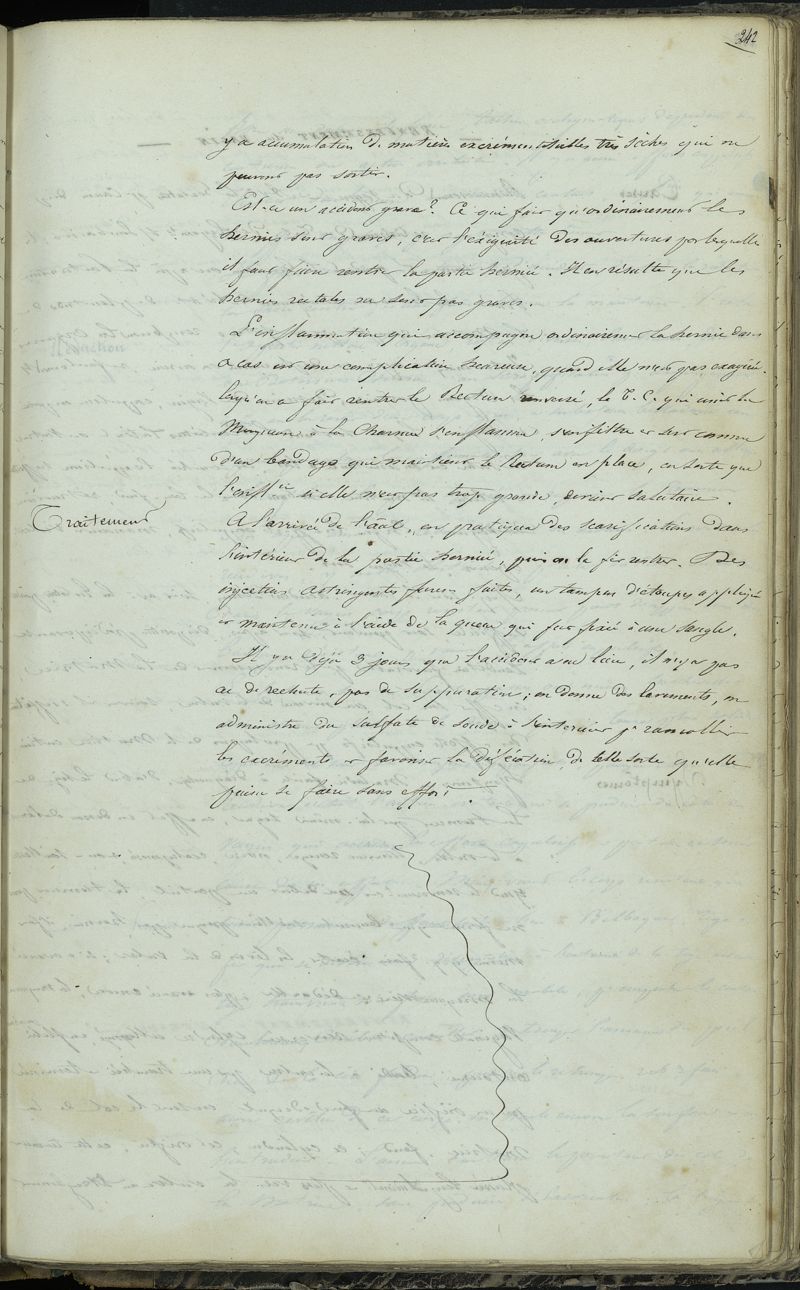 242
y a accumulation de matières excrémentitielles très sèches qui ne
peuvent pas sortir.
Est-ce un accident grave? Ce qui fait qu'ordinairement les
hernies sont graves, c'est l'exiguité des ouvertures par lesquelles
il faut faire rentrer la partie herniée. Il en résulte que les
hernies rectales ne sont pas graves.
L'inflammation qui accompagne ordinairement la hernie dans
ce cas est une complication heureuse, quand elle n'est pas exagérée.
lorsqu'on a fait rentrer le Rectum renversé, le T. C. qui unit la
Muqueuse à la Charnue s'enflamme, s'infiltre et sert comme
d'un bandage qui maintient le Rectum en place, en sorte que
l'infl.on si elle n'est pas trop grande, devient salutaire.
Traitement
A l'arrivée de l'anal, on pratiqua des scarifications dans
l'intérieur de la partie herniée, puis on la fit rentrer. Des
injections astringentes furent faites, un tampon d'étoupes appliqué
et maintenu à l'aide de la queue qui fut fixée à une sangle.
Il y a déjà 3 jours que l'accident a eu lieu, il n'y a pas
eu de rechute, pas de suppuration; on donne des lavements, on
administre du sulfate de soude à l'intérieur pr ramollir
les excréments et favoriser la défécation de telle sorte qu'elle
puisse se faire sans effort.